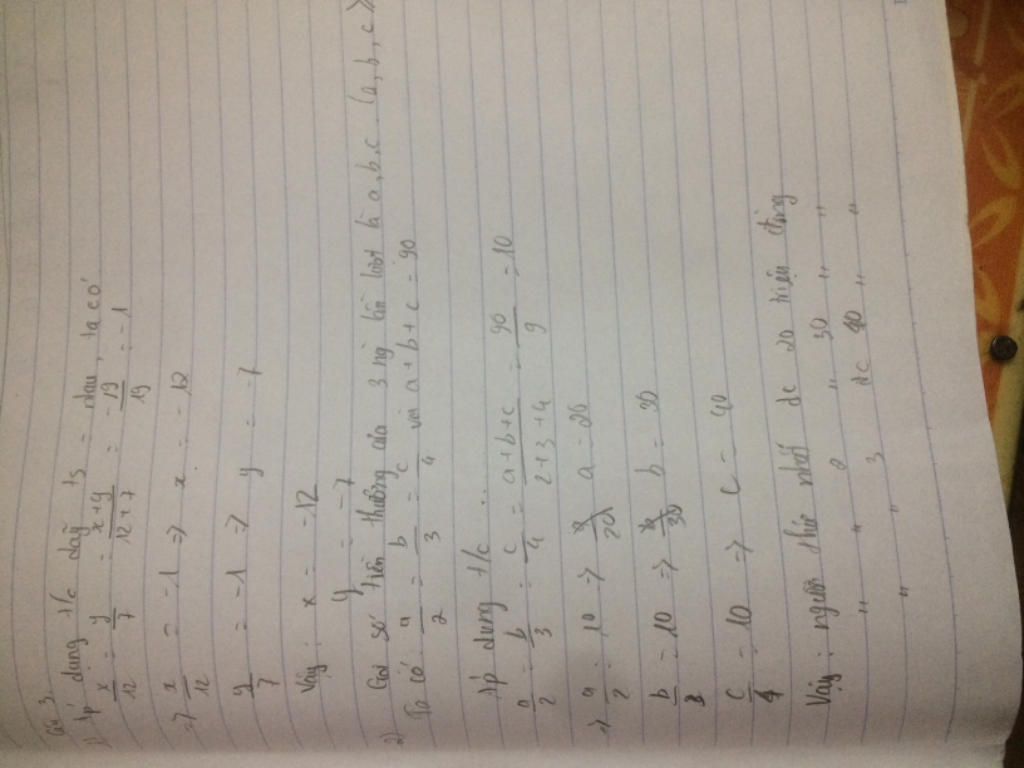 Câu 3
1) Áp dụng t/c dãy ts = nhau, ta có
x/12 = y/7 = x+y/12+7 = -19/19 = -1
=> x/12 = -1 => x = -12
y/7 = -1 => y = -7
Vậy : x = -12
y = -7
2) Gọi số tiền thưởng của 3 ng lần lượt là a,b,c (a,b,c >
Ta có : a/2 = b/3 = c/4 và a+b+c = 90
Áp dụng t/c ...
a/2 = b/3 = c/4 = a+b+c/2+3+4 = 90/9 = 10
=> a/2 = 10 => a = 20
b/3 = 10 => b = 30
c/4 = 10 => c = 40
Vậy : người thứ nhất đc 20 triệu đồng
" " 2 " 30 " "
" " 3 đc 40 " "